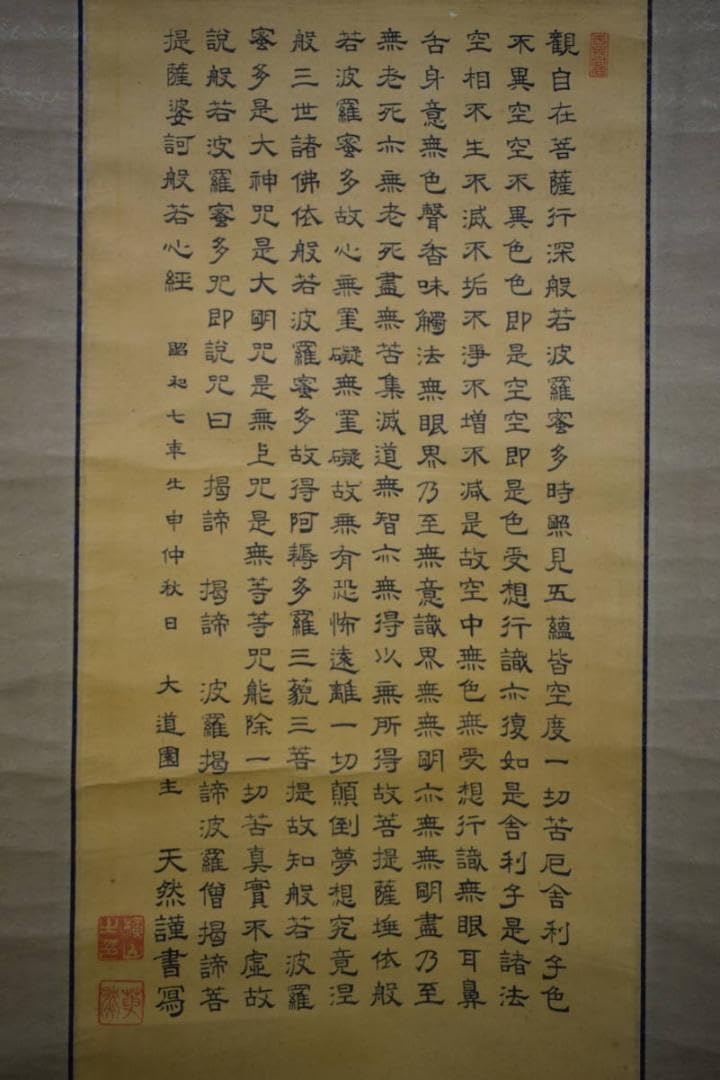 觀自在菩薩行深般若波羅蜜多時照見五蘊皆空度一切苦厄舍利子色
不異空空不異色色即是空空即是色受想行識亦復如是舍利子是諸法
空相不生不滅不垢不淨不增不減是故空中無色無受想行識無眼耳鼻
舌身意無色聲香味觸法無眼界乃至無意識界無無明亦無無明盡乃至
無老死亦無老死盡無苦集滅道無智亦無得以無所得故菩提薩埵依般
若波羅蜜多故心無罣礙無罣礙故無有恐怖遠離一切顛倒夢想究竟涅
般三世諸佛依般若波羅蜜多故得阿耨多羅三藐三菩提故知般若波羅
蜜多是大神咒是大明咒是無上咒是無等等咒能除一切苦真實不虛故
說般若波羅蜜多咒即說咒曰 揭諦 揭諦 波羅揭諦波羅僧揭諦菩
提薩婆訶般若心經 昭和七年壬申仲秋日 大道園主 天然謹書寫